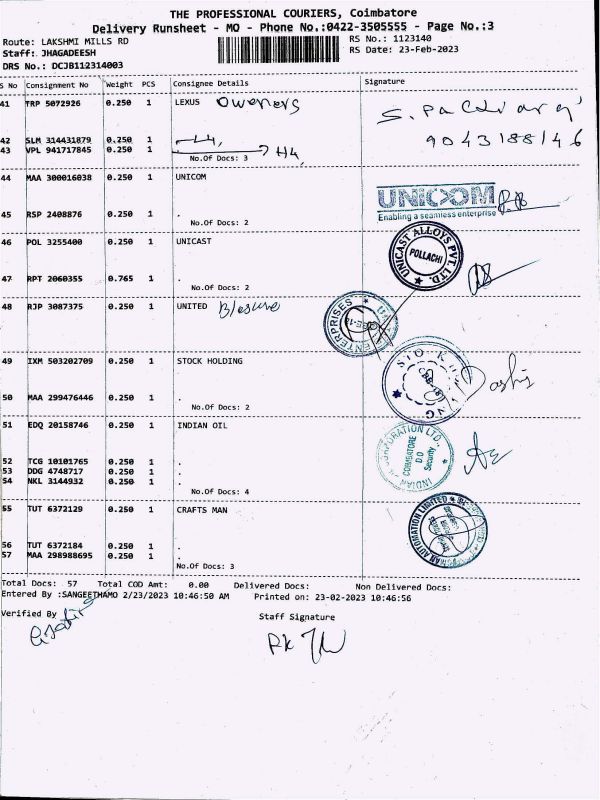 THE PROFESSIONAL COURIERS, Coimbatore
Delivery Runsheet - MO - Phone No.:0422-3505555 - Page No.:3
Route: LAKSHMI MILLS RD RS No.: 1123140
Staff: JHAGADEESH RS Date: 23-Feb-2023
DRS No.: DCJB112314003
S No Consignment No Weight PCS Consignee Details Signature
41 TRP 5072926 0.250 1 LEXUS
42 SLM 314431879 0.250 1 L4,
43 VPL 941717845 0.250 1 H4,
9043188146
No.Of Docs: 3
44 MAA 300016038 0.250 1 UNICOM
UNICOM
Enabling a seamless enterprise
45 RSP 2408876 0.250 1 .
No.Of Docs: 2
46 POL 3255400 0.250 1 UNICAST
UNICAST ALLOYS PVT. LTD.
POLLACHI
47 RPT 2060355 0.765 1 .
No.Of Docs: 2
48 RJP 3087375 0.250 1 UNITED
ENTERPRISES
49 IXM 503202709 0.250 1 STOCK HOLDING
50 MAA 299476446 0.250 1 .
No.Of Docs: 2
51 EDQ 20158746 0.250 1 INDIAN OIL
CORPORATION LTD.,
COIMBATORE
D.O
Security
INDIAN
52 TCG 10101765 0.250 1 .
53 DDG 4748717 0.250 1 .
54 NKL 3144932 0.250 1 .
No.Of Docs: 4
55 TUT 6372129 0.250 1 CRAFTS MAN
AUTOMATION LIMITED
56 TUT 6372184 0.250 1 .
57 MAA 298988695 0.250 1 .
No.Of Docs: 3
Total Docs: 57 Total COD Amt: 0.00 Delivered Docs: Non Delivered Docs:
Entered By :SANGEETHAMO 2/23/2023 10:46:50 AM Printed on: 23-02-2023 10:46:56
Verified By Staff Signature